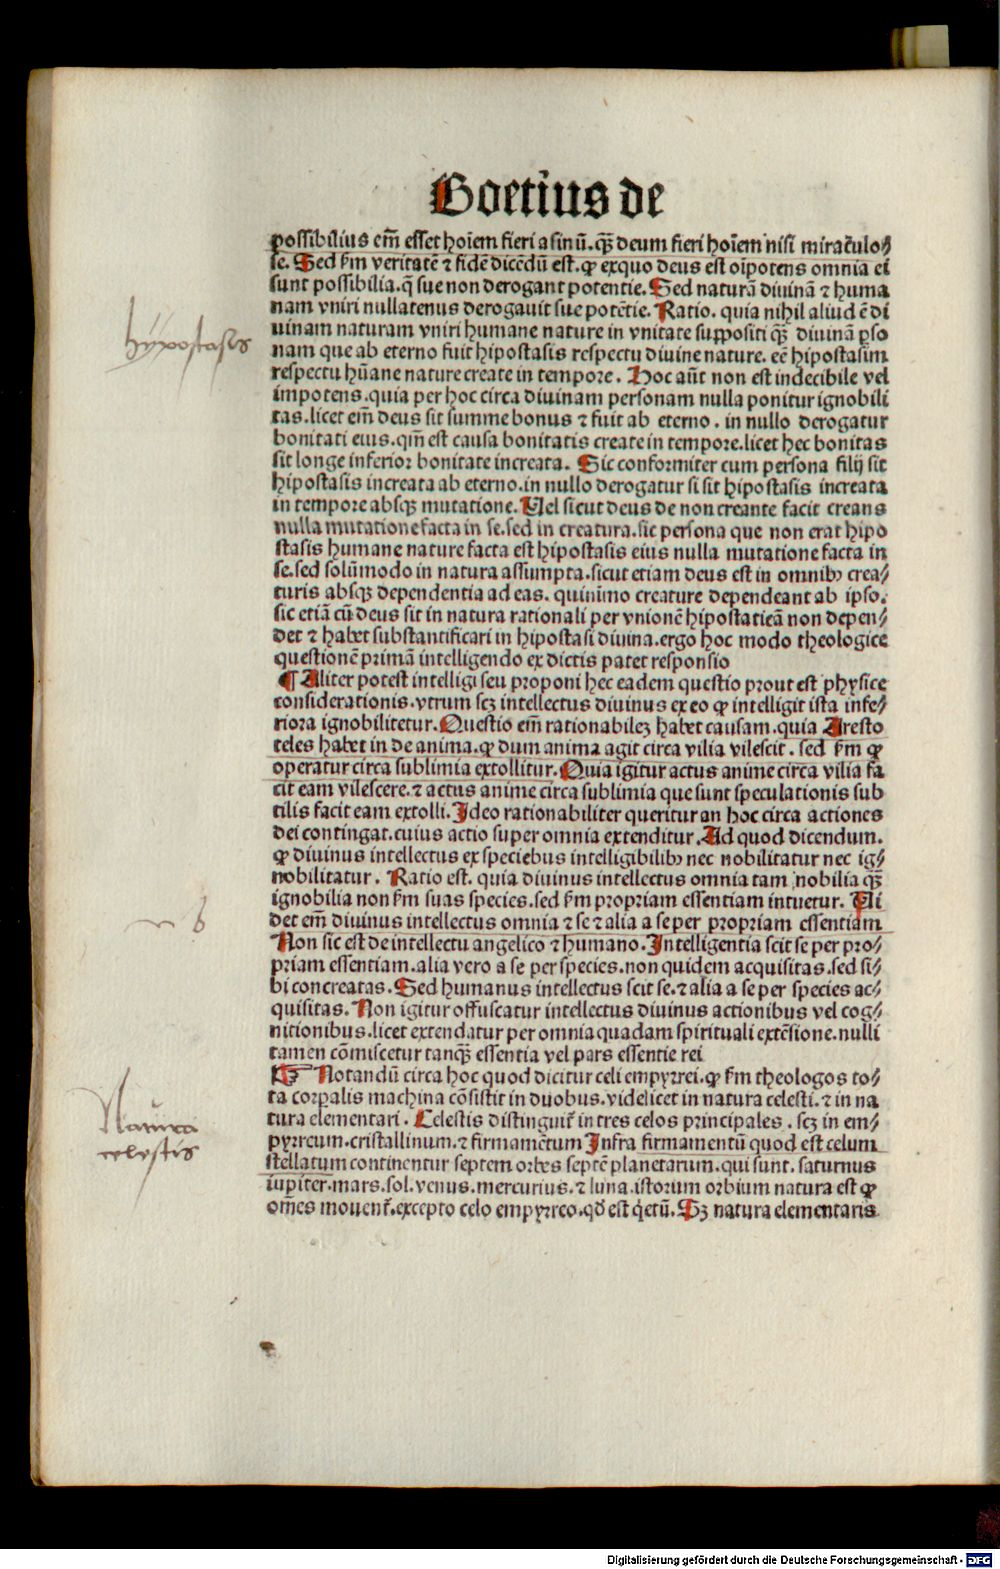 Boetius de
possibilius em̄ esset hoīem fieri asinū. qȝ̄ deum fieri hoīem nisi miraculo⸗
se. Sed ẜm veritatē ⁊ fidē dicēdū est. ꝙ exquo deus est oīpotens omnia ei
sunt possibilia. q̄ sue non derogant potentie. Sed naturā diuinā ⁊ huma
nam vniri nullatenus derogauit sue potētie. Ratio. quia nihil aliud ē di
uinam naturam vniri humane nature in vnitate suppositi qȝ̄ diuinā ꝑso
nam que ab eterno fuit hipostasis respectu diuine nature. eē hipostasim
respectu hūane nature create in tempore. Hoc aūt non est indecibile vel
impotens. quia per hoc circa diuinam personam nulla ponitur ignobili
tas. licet em̄ deus sit summe bonus ⁊ fuit ab eterno. in nullo derogatur
bonitati eius. qm̄ est causa bonitatis create in tempore. licet hec bonitas
sit longe inferior bonitate increata. Sic conformiter cum persona filij sit
hipostasis increata ab eterno. in nullo derogatur si sit hipostasis increata
in tempore absqȝ mutatione. Vel sicut deus de non creante facit creans
nulla mutatione facta in se. sed in creatura. sic persona que non erat hipo
stasis humane nature facta est hipostasis eius nulla mutatione facta in
se. sed solūmodo in natura assumpta. sicut etiam deus est in omnibꝰ crea⸗
turis absqȝ dependentia ad eas. quinimo creature dependeant ab ipso.
sic etiā cū deus sit in natura rationali per vnionē hipostaticā non depen⸗
det ⁊ habet substantificari in hipostasi diuina. ergo hoc modo theologice
questionē primā intelligendo ex dictis patet responsio
¶ Aliter potest intelligi seu proponi hec eadem questio prout est physice
considerationis. vtrum scȝ intellectus diuinus ex eo ꝙ intelligit ista infe⸗
riora ignobilitetur. Questio em̄ rationabilez habet causam. quia Aresto
teles habet in de anima. ꝙ dum anima agit circa vilia vilescit. sed ẜm ꝙ
operatur circa sublimia extollitur. Quia igitur actus anime circa vilia fa
cit eam vilescere. ⁊ actus anime circa sublimia que sunt speculationis sub
tilis facit eam extolli. Ideo rationabiliter queritur an hoc circa actiones
dei contingat. cuius actio super omnia extenditur. Ad quod dicendum.
ꝙ diuinus intellectus ex speciebus intelligibilibꝰ nec nobilitatur nec ig⸗
nobilitatur. Ratio est. quia diuinus intellectus omnia tam nobilia qȝ̄
ignobilia non ẜm suas species. sed ẜm propriam essentiam intuetur. Vi
det em̄ diuinus intellectus omnia ⁊ se ⁊ alia a se per propriam essentiam
Non sic est de intellectu angelico ⁊ humano. Intelligentia scit se per pro⸗
priam essentiam. alia vero a se per species. non quidem acquisitas. sed si⸗
bi concreatas. Sed humanus intellectus scit se. ⁊ alia a se per species ac⸗
quisitas. Non igitur offuscatur intellectus diuinus actionibus vel cog⸗
nitionibus. licet extendatur per omnia quadam spirituali extēsione. nulli
tamen cōmiscetur tanqȝ̄ essentia vel pars essentie rei
¶ Notandū circa hoc quod dicitur celi empyrrei. ꝙ ẜm theologos to⸗
ta corꝑalis machina cōsistit in duobus. videlicet in natura celesti. ⁊ in na
tura elementari. Celestis distinguit᷑ in tres celos principales. scȝ in em⸗
pyrreum. cristallinum. ⁊ firmamētum Infra firmamentū quod est celum
stellatum continentur septem orbes septē planetarum. qui sunt. saturnus
iupiter. mars. sol. venus. mercurius. ⁊ luna. istorum orbium natura est ꝙ
om̄es mouent᷑. excepto celo empyrreo. qđ est q̇etū. Sȝ natura elementaris
hypostasis
nb
Natura
celestis
Digitalisierung gefördert durch die Deutsche Forschungsgemeinschaft - DFG